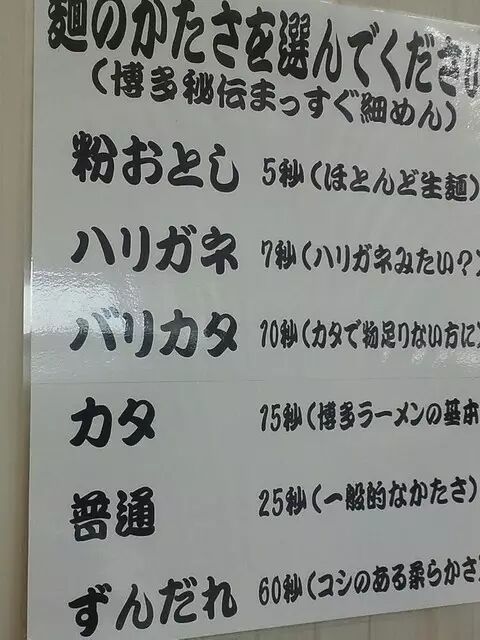 麺のかたさを選んでください
(博多秘伝まっすぐ細めん)
粉おとし 5秒(ほとんど生麺)
ハリガネ 7秒(ハリガネみたい?)
バリカタ 10秒(カタで物足りない方に)
カタ 15秒(博多ラーメンの基本
普通 25秒(一般的なかたさ)
ずんだれ 60秒(コシのある柔らかさ)